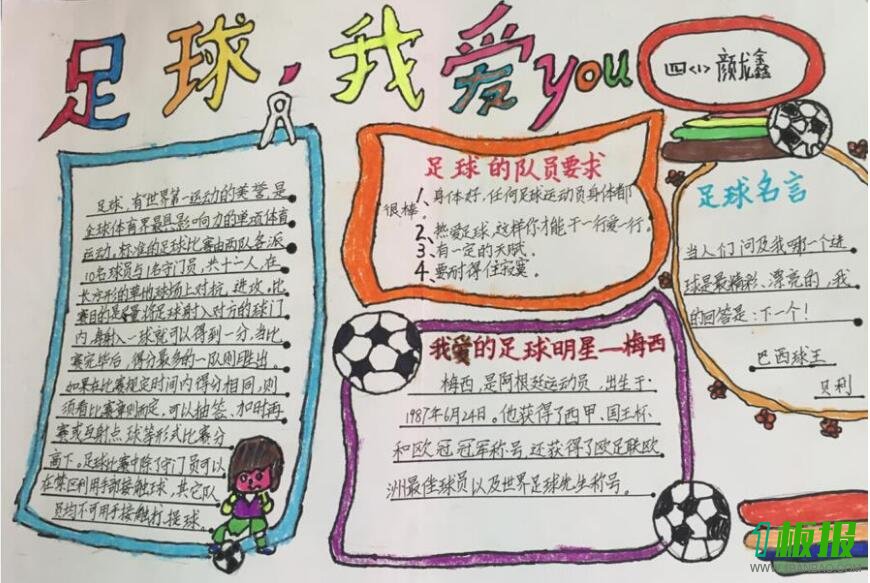 足球,我爱you
四<1> 颜龙鑫
足球,有"世界第一运动"的美誉,是
全球体育界最具影响力的单项体育
运动。标准的足球比赛由两队各派
10名球员与1名守门员,共十一人,在
长方形的草地球场上对抗、进攻,比
赛目的是尽量将足球射入对方的球门
内,每射入一球就可以得到一分,当比
赛完毕后,得分最多的一队则胜出。
如果在比赛规定时间内得分相同,则
须看比赛章则而定,可以抽签、加时再
赛或互射点球等形式比赛分
高下。足球比赛中除了守门员可以
在禁区利用手部接触球,其它队
员均不可用手接触打提球。
足球的队员要求
1、身体好,任何足球运动员身体都
很棒。
2、热爱足球,这样你才能干一行爱一行。
3、有一定的天赋。
4、要耐得住寂寞。
我爱的足球明星—梅西
梅西,是阿根廷运动员,出生于
1987年6月24日。他获得了西甲、国王杯
和欧冠冠军称号,还获得了欧足联欧
洲最佳球员以及世界足球先生称号。
足球名言
当人们问及我哪一个进
球是最精彩、漂亮的,我
的回答是:下一个!
巴西球王
贝利
板报
WWW.1BANBAO.COM